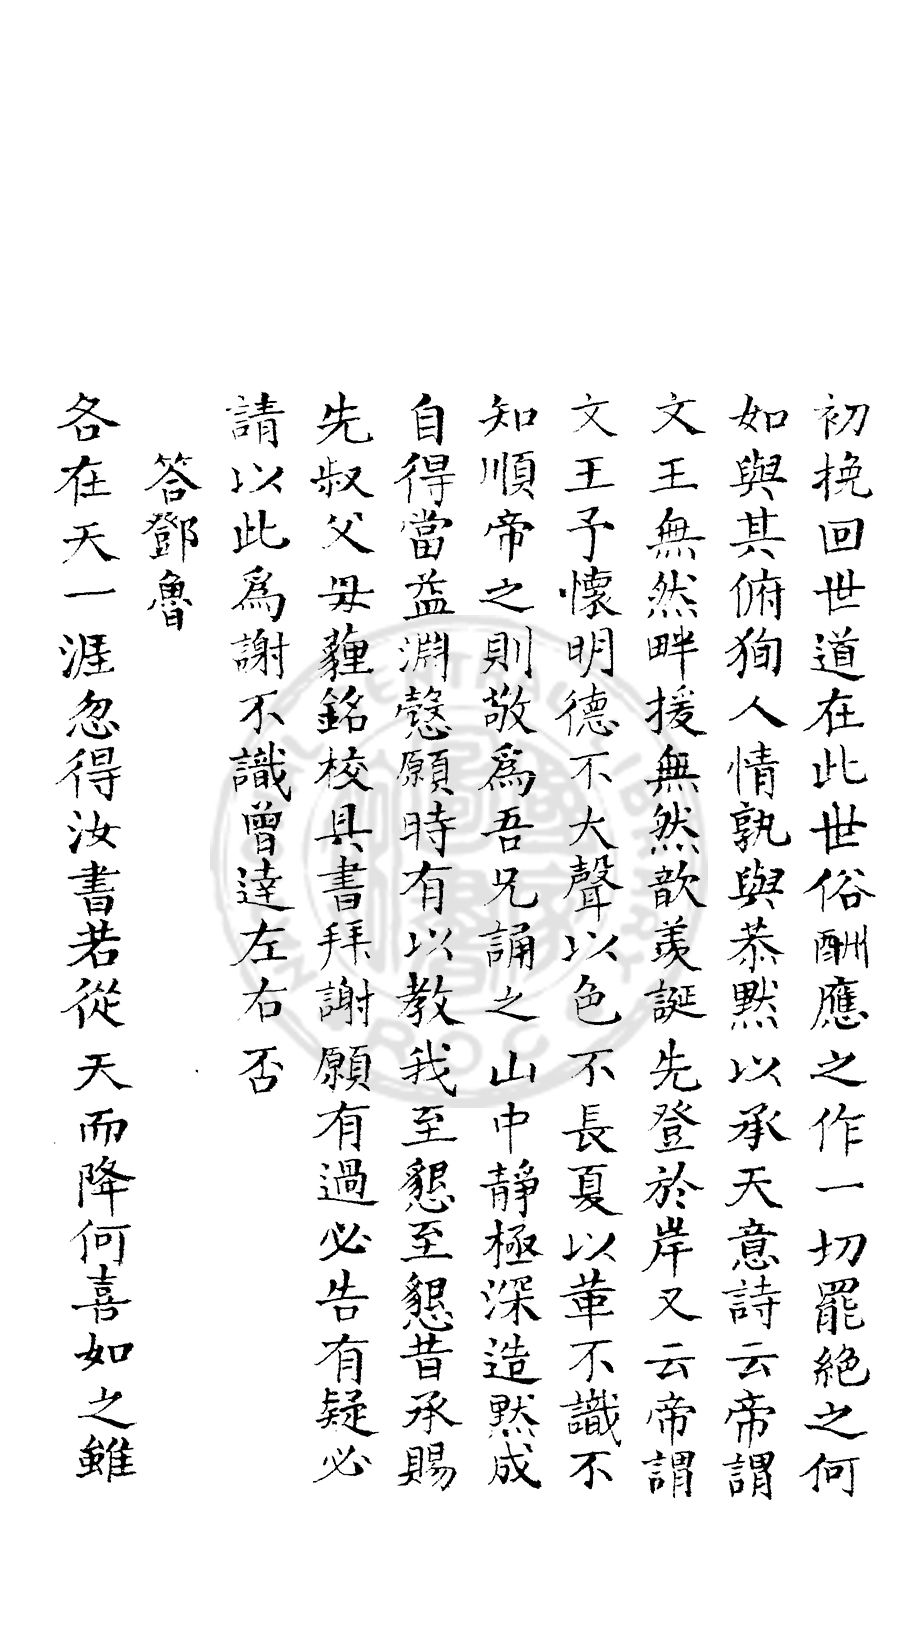 初挽回世道在此世俗酬應之作一切罷絶之何
如與其俯狥人情孰與恭默以承天意詩云帝謂
文王無然畔援無然歆羡誕先登於岸又云帝謂
文王予懷明德不大聲以色不長夏以革不識不
知順帝之則敬爲吾兄誦之山中靜極深造默成
自得當益淵慤願時有以教我至懇至懇昔承賜
先叔父母薶銘校具書拜謝願有過必告有疑必
請以此爲謝不識曾達左右否
答鄧魯
各在天一涯忽得汝書若從天而降何喜如之雖